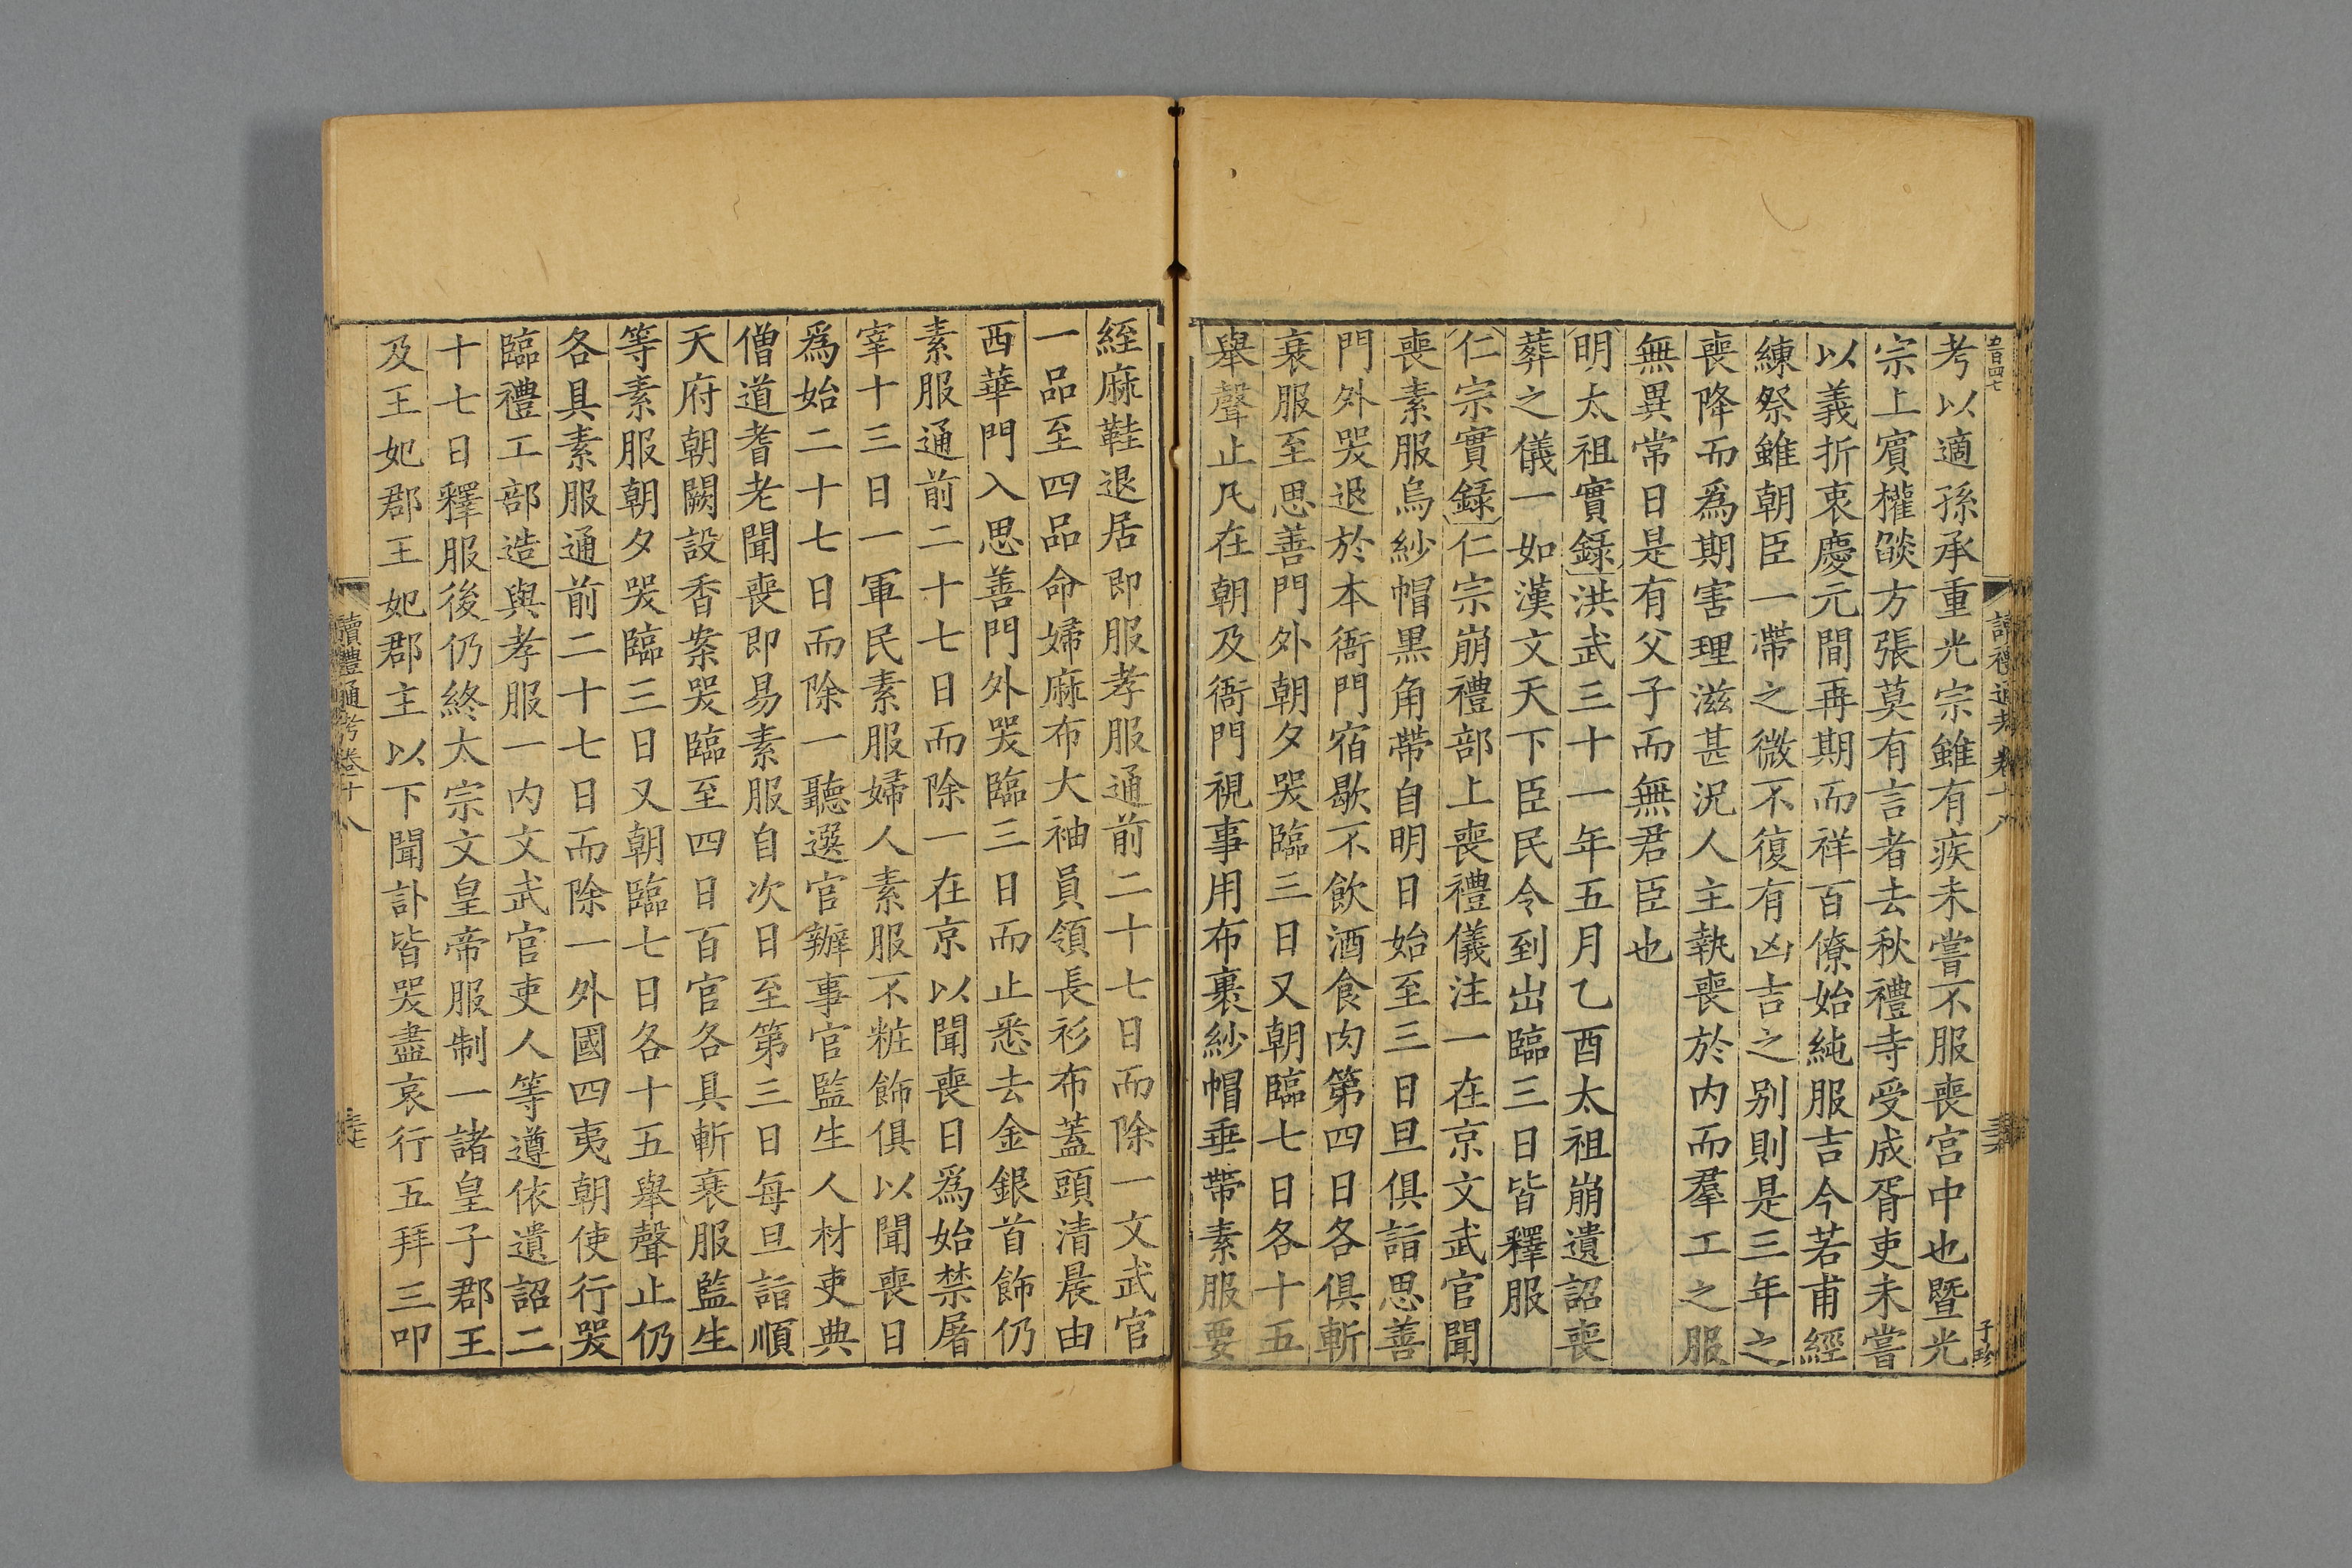 五百四七
讀禮通考卷十八
子珍
考以適孫承重光宗雖有疾未嘗不服喪宮中也暨光
宗上賓權燄方張莫有言者去秋禮寺受成胥吏未嘗
以義折衷慶元間再期而祥百僚始純服吉今若甫經
練祭雖朝臣一帶之微不復有凶吉之别則是三年之
喪降而爲期害理滋甚況人主執喪於内而羣工之服
無異常日是有父子而無君臣也
明太祖實錄洪武三十一年五月乙酉太祖崩遺詔喪
葬之儀一如漢文天下臣民令到出臨三日皆釋服
仁宗實錄仁宗崩禮部上喪禮儀注一在京文武官聞
喪素服烏紗帽黒角帶自明日始至三日旦俱詣思善
門外哭退於本衙門宿歇不飲酒食肉第四日各俱斬
衰服至思善門外朝夕哭臨三日又朝臨七日各十五
舉聲止凡在朝及衙門視事用布裹紗帽垂帶素服要
絰麻鞋退居即服孝服通前二十七日而除一文武官
一品至四品命婦麻布大袖員領長衫布蓋頭清晨由
西華門入思善門外哭臨三日而止悉去金銀首飾仍
素服通前二十七日而除一在京以聞喪日爲始禁屠
宰十三日一軍民素服婦人素服不粧飾俱以聞喪日
爲始二十七日而除一聽選官辦事官監生人材吏典
僧道耆老聞喪即易素服自次日至第三日每旦詣順
天府朝闕設香案哭臨至四日百官各具斬衰服監生
等素服朝夕哭臨三日又朝臨七日各十五舉聲止仍
各具素服通前二十七日而除一外國四夷朝使行哭
臨禮工部造與孝服一内文武官吏人等遵依遺詔二
十七日釋服後仍終太宗文皇帝服制一諸皇子郡王
及王妃郡王妃郡主以下聞訃皆哭盡哀行五拜三叩
讀禮通考卷十八